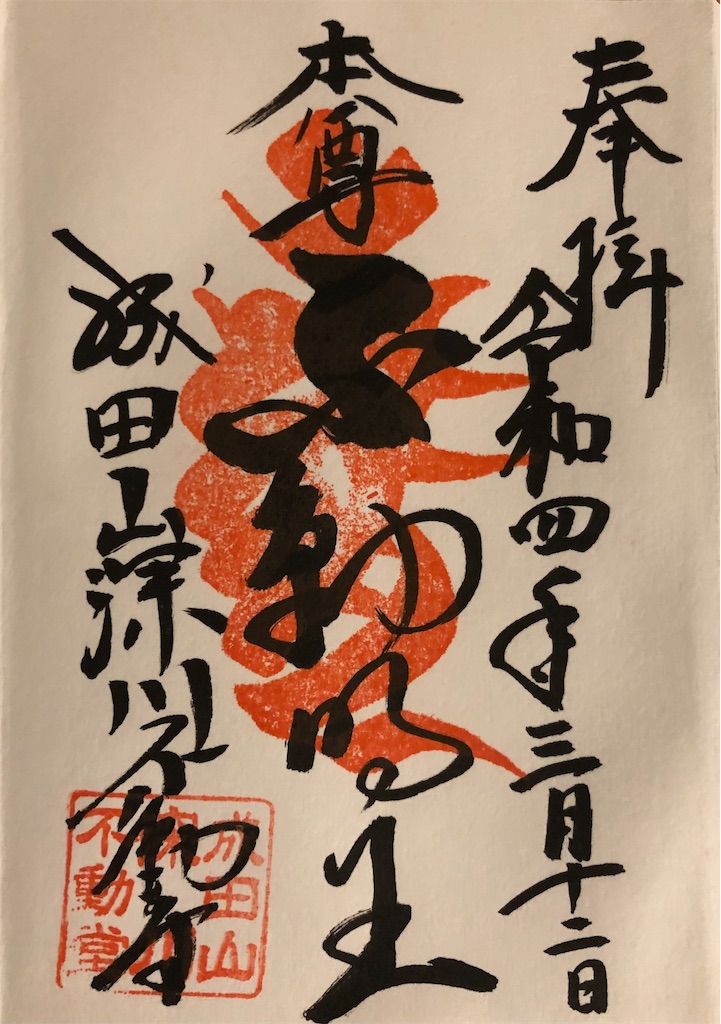 奉拝
令和四年三月十二日
本尊
不動明王
成田山深川不動堂
成田山
深川
不動堂